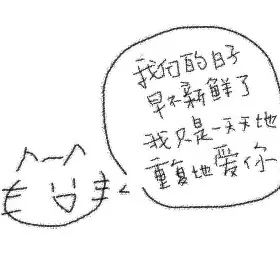 我们的日子
早不新鲜了
我只是一天天地
重复地爱你